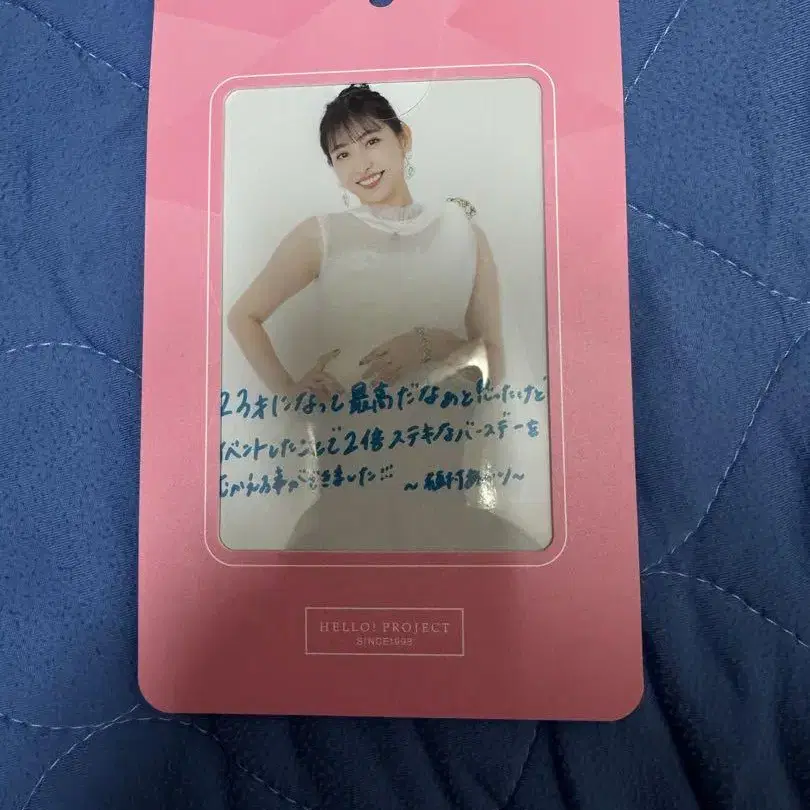 23才になって最高だなぁと思ったけど
イベントしたことで2倍ステキなバースデーを
むかえる事ができました!!!
～植村あかり～
HELLO! PROJECT
SINCE1998